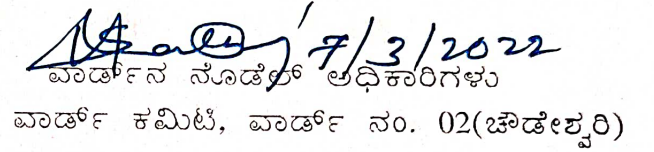 7/3/2022
ವಾರ್ಡ್‌ನ ನೊಡೆಲ್ ಅಧಿಕಾರಿಗಳು
ವಾರ್ಡ್ ಕಮಿಟಿ, ವಾರ್ಡ್ ನಂ. 02(ಚೌಡೇಶ್ವರಿ)